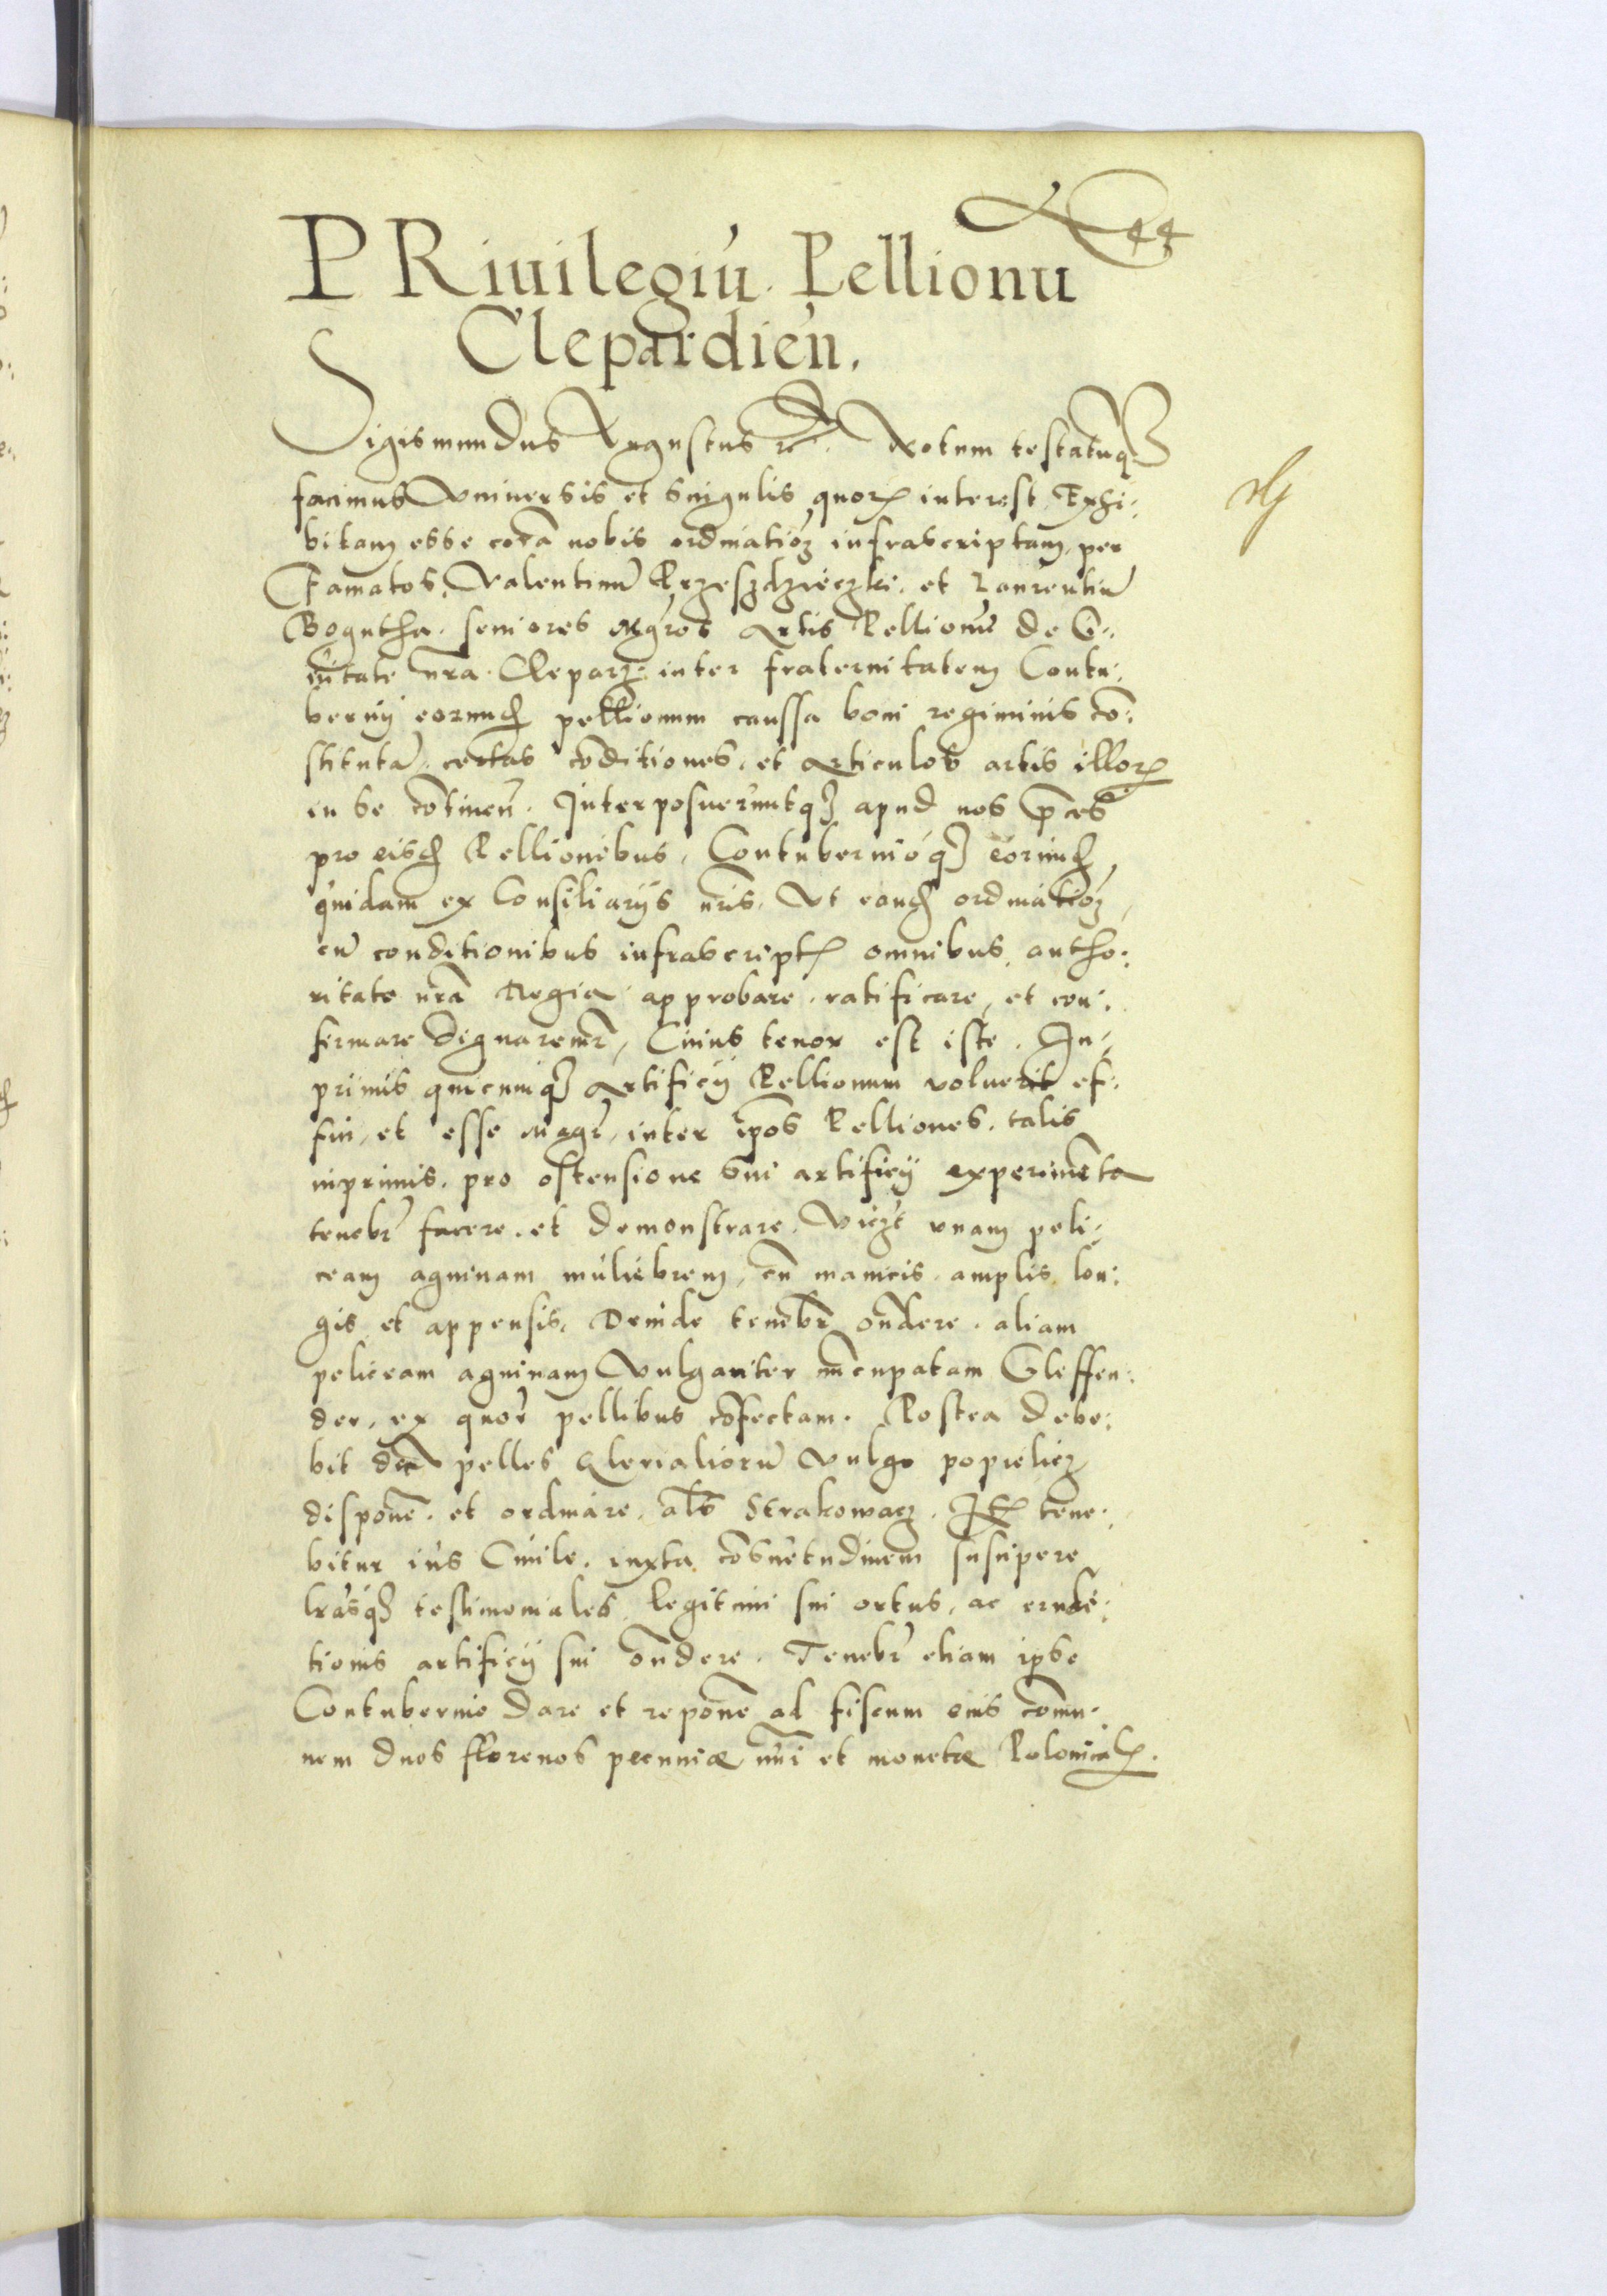 44
PRiuilegiu̇ Pellionu
Clepardien̄.
Sigismundus Augustus etc. Notum testatumq3
facimus Vniuersis et singulis quorꝫ interest Exhi:
bitam esse corā nobis ordinatioꝫ infrascriptam, per
Famatos, Valentinū et Laurentiū
Bogutha. seniores Mgros Artis Pellionū de Ci:
uitate n̄ra Clepar3 inter fraternitatem Contu:
bernij eorund pellionum caussa boni regiminis cō:
stitutā, certas cōditiones, et Articulos artis illorꝫ
in se cōtinen̄. Interposueruntq3 apud nos p̄ces
pro eisd Pellionibus, Contubernioq3 eorund
quidam ex Consiliarijs n̄ris, Vt eand ordinatioꝫ
cū conditionibus infrascriptꝫ omnibus, autho:
ritate n̄ra Regia approbare, ratificare, et con:
firmare dignaremr̄, Cuius tenor est iste. In:
primis quicunq3 Artificij Pellionum voluerit ef:
fici, et esse Magr̄, inter ip̄os Pelliones, talis
inprimis, pro ostensione sui artificij experimēta
tenebr̄ facere, et demonstrare, Vicꝫt vnam peli:
ceam agninam muliebrem, cū manicis amplis lon:
gis et appensis, Deinde tenebr̄ on̄dere aliam
peliceam agninam Vulgariter nūcupatam Gleffen:
der, ex quor̄ pellibus cōfectam. Postea debe:
bit pelles Vulgo popielicz
disponē. et ordinare, als Strakowacz. Itꝫ tene:
bitur ius Ciuile, iuxta cōsuetudinem suscipere
lrāsq3 testimoniales, legitimi sui ortus, ac erudi:
tionis artificij sui on̄dere. Tenebr̄ etiam ipse
Contubernio dare et reponē ad fiscum eius comu:
nem duos florenos pecuniæ nūi et monetæ Polonicalꝫ.